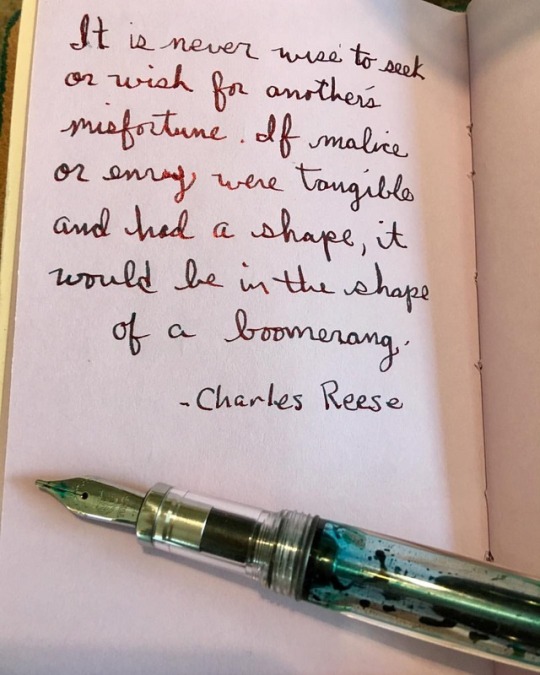 It is never wise to seek
or wish for another's
misfortune. If malice
or envy were tangible
and had a shape, it
would be in the shape
of a boomerang.
-Charles Reese